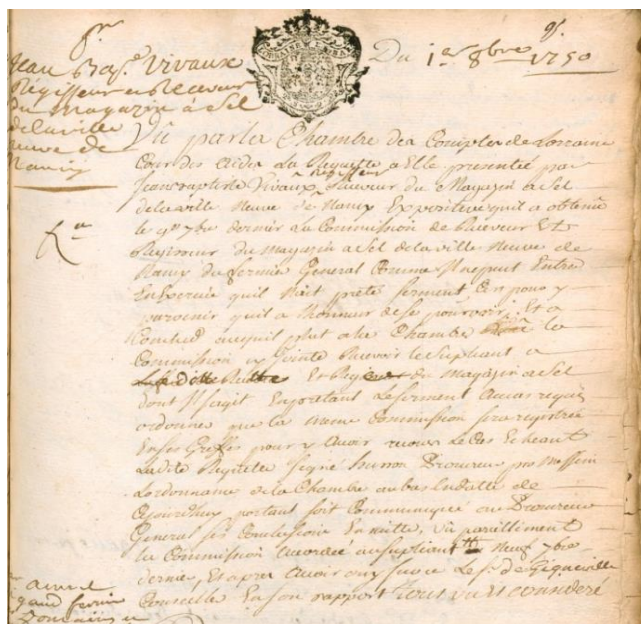 Du 1er 8bre 1750
Jean Bapte Vivaux
Regisseur et Receveur
du magazin a Sel
de la ville
neuve de
Nancy
Vû par la Chambre des Comptes de Lorraine
Cour des Aides La Requette a Elle presentée par
Jean baptiste Vivaux Regisseur Receveur du Magazin a Sel
de la ville Neuve de Nancy Expositive qu'il a obtenu
le 9e 7bre dernier la Commission de Receveur Et
Regisseur du magazin a Sel de la ville Neuve de
Nancy du fermier General Comme Il ne peut Entrer
En Exercice qu'il n'ait prété serment C'en pour y
parvenir qu'il a l'honneur de se pourvoir, Et a
Conclud a ce qu'il plut a la Chambre la
Commission cy jointe Recevoir le Supliant a
Et Regisseur du Magazin a Sel
dont Il s'agit En pretant Le serment au cas requis
ordonner que la meme Commission sera registrée
En ses Greffes pour y Avoir recours Le Cas Echeant
La dite Requete signé Procureur
L'ordonnance de la Chambre au bas d'icelle de
Cejourdhuy portant soit Communiqué au Procureur
General ses Conclusions En suitte, Vû pareillement
la Commission accordée au supliant le Neuf 7bre
dernier, Et apres Avoir ouy le Sr de
Conseiller En son rapport Tout vu Et consideré